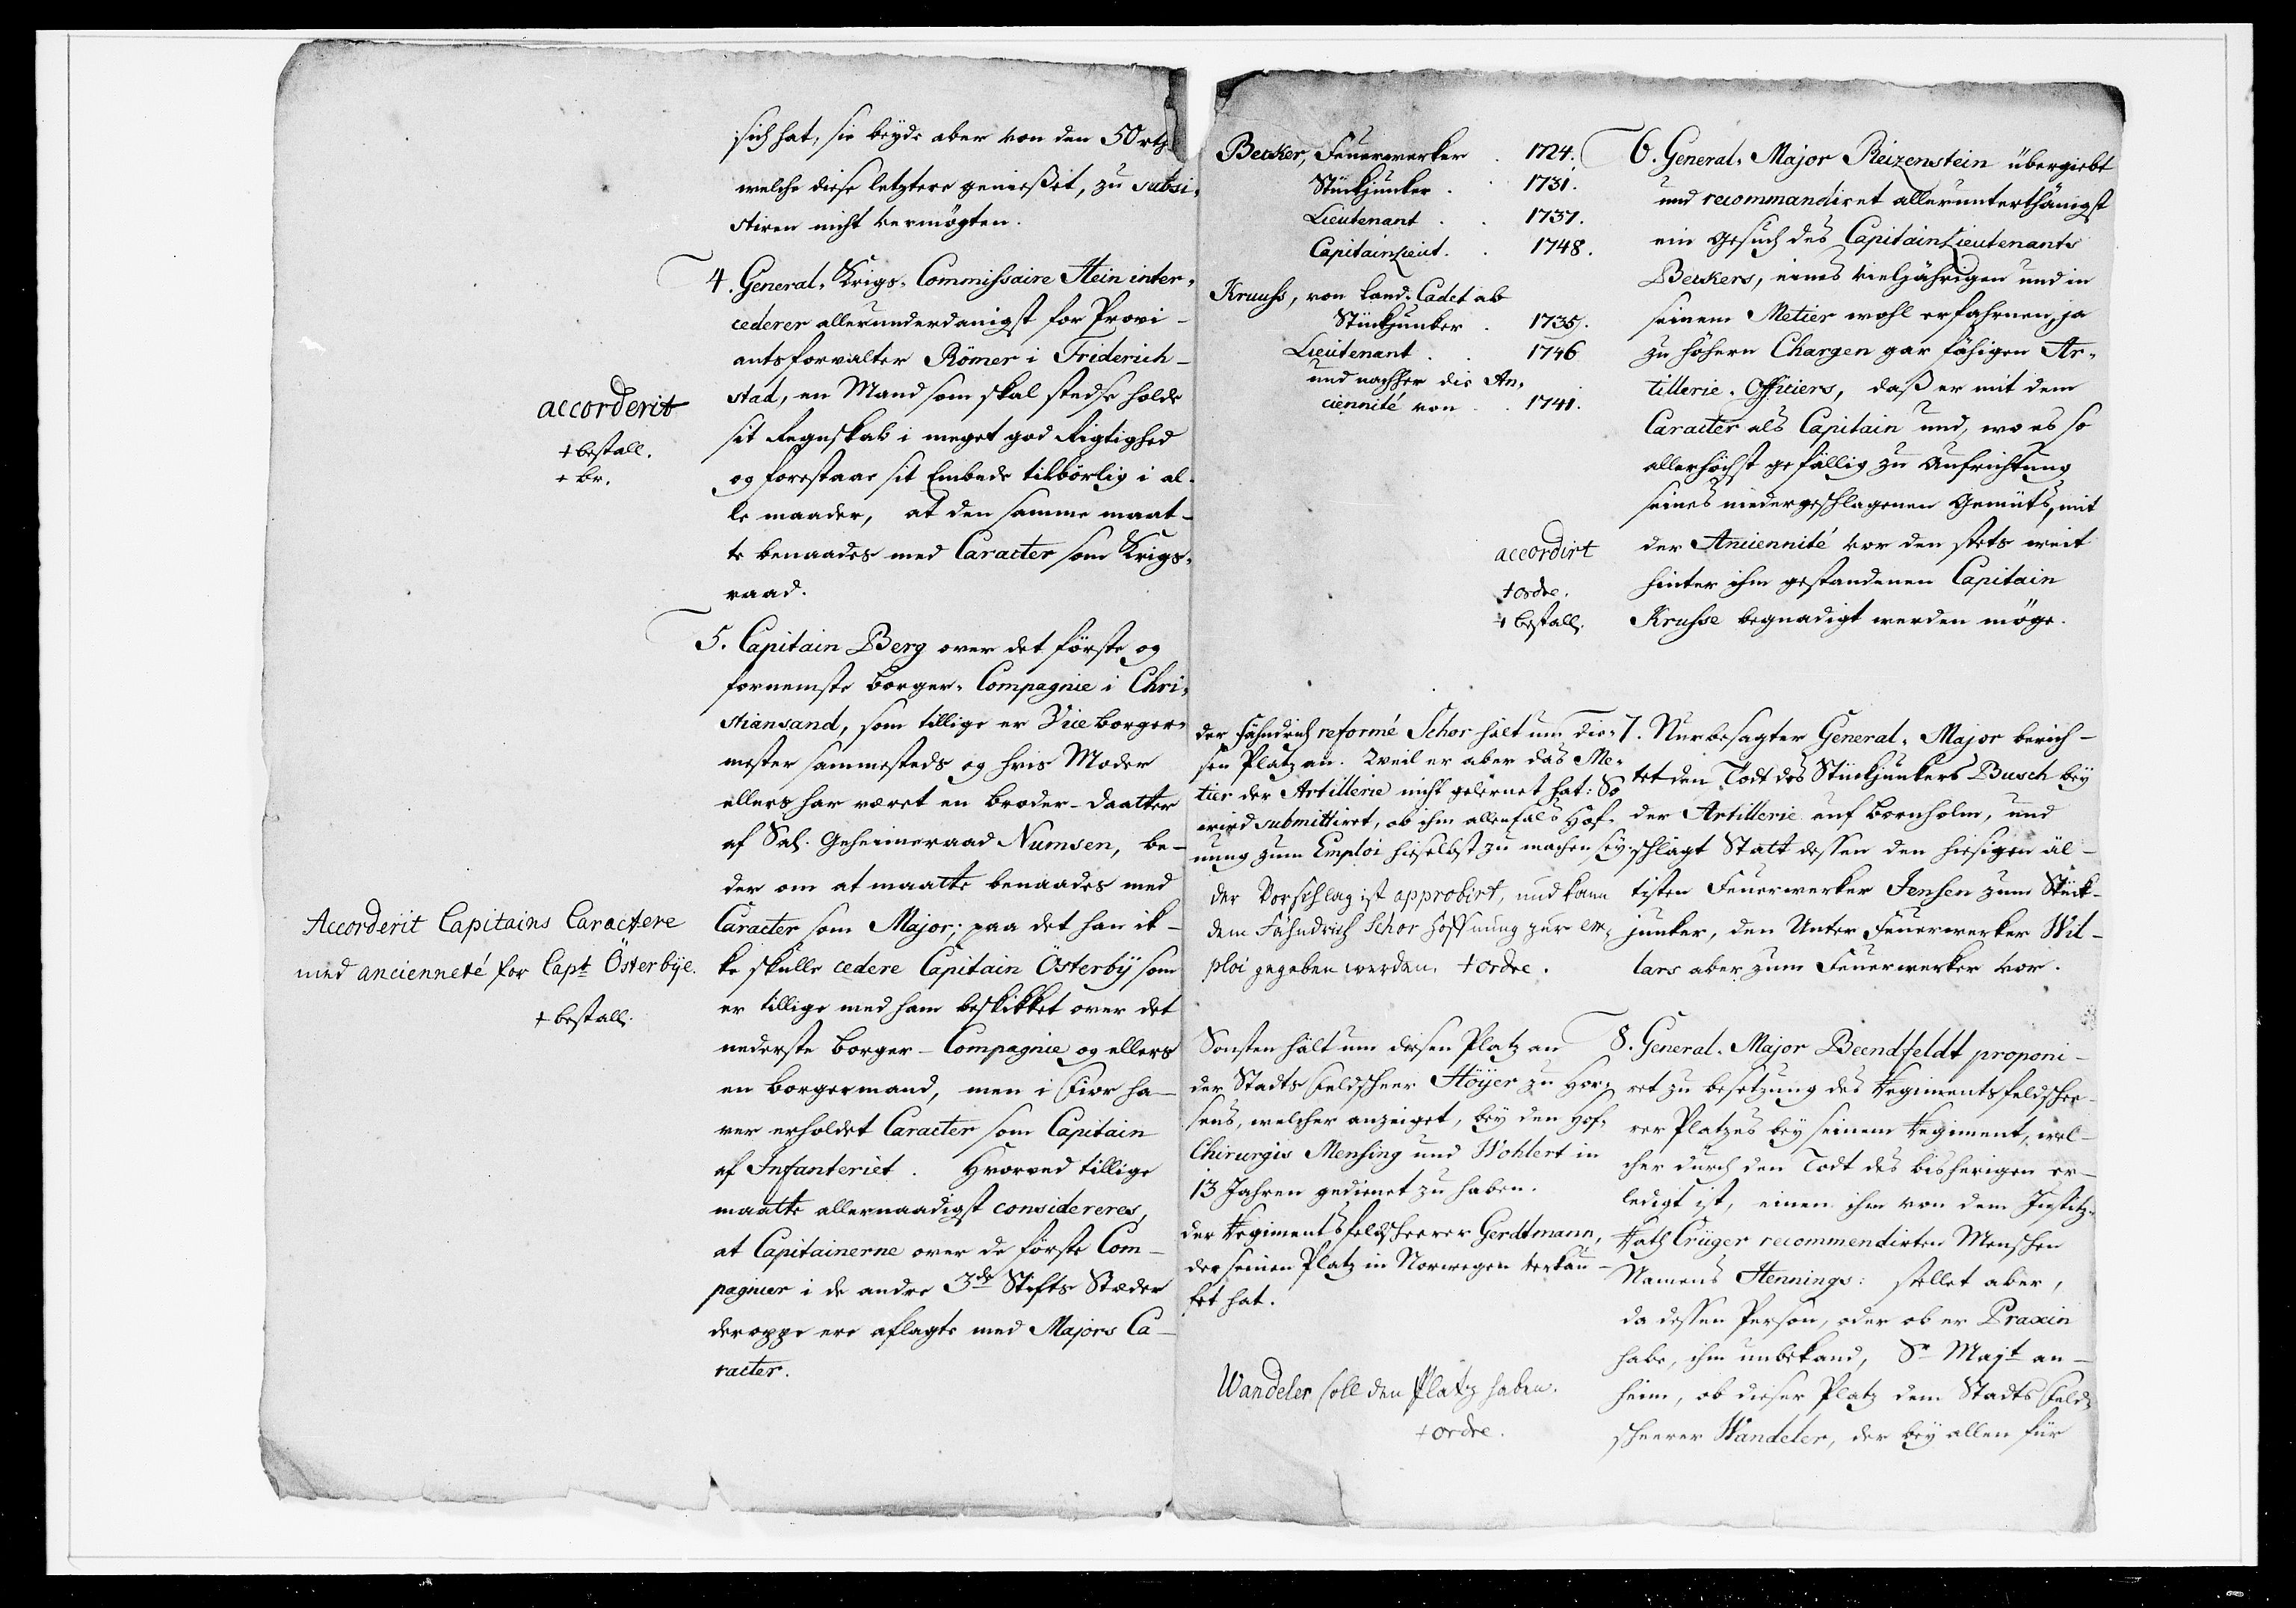 sich hat, sie beyde aber von den 50 rtl
welche diese letztere genießet, zu subsi-
stiren nicht vermögten.
4. General-Krigs-Commissaire Stein inter-
cederer allerunderdanigst for Provi-
antsforvalter Römer i Friderich-
stad, en Mand som skal stedse holde
sit Regnskab i meget god Rigtighed
og forestaae sit Embede tilbörlig i al-
le maader, at den samme maat-
te benaades med Caracter som Krigs-
raad.
accorderit
+ bestall.
+ br.
5. Capitain Berg over det förste og
fornemste borger-Compagnie i Chri-
stiansand, som tillige er Vice borger-
mester sammesteds og hvis Moder
ellers har været en broder-daatter
af Sal. Geheimeraad Numsen, be-
der om at maatte benaades med
Caracter som Major; paa det han ik-
ke skulle cedere Capitain Österbÿ som
er tillige med ham beskikket over det
nederste borger-Compagnie og ellers
en borgermand, men i Fior ha-
ver erholdet Caracter som Capitain
af Infanteriet. Hvorved tillige
maatte allernaadigst considereres,
at Capitainerne over de förste Com-
pagnier i de andre 3de Stifts Stæder
deroppe ere aflagte med Majors Ca-
racter.
Accorderit Capitains Caractere
med ancienneté for Capt Österbÿe.
+ bestall.
Becker, Feuerwerker . 1724.
Stückjunker . . 1731.
Lieutenant . . 1737.
CapitainLieut. . 1748.
Kruuse, von Land-Cadet ab
Stückjunker . 1735.
Lieutenant . . 1746
und nachher die An-
ciennité von . . 1741.
6. General-Major Reizenstein übergiebt
und recommandiret allerunterthänigst
ein Gesuch des CapitainLieutenants
Beckers, eines vieljährigen und in
seinem Metier wohl erfahrnen, ja
zu höhern Chargen gar fähigen Ar-
tillerie-Officiers, daß er mit dem
Caracter als Capitain und, wo es so
allerhöchst gefällig zu Aufrichtung
seines niedergeschlagenen Gemüts, mit
der Anciennité vor den stets weit
hinter ihm gestandenen Capitain
Krusse begnadigt werden möge.
accordirt
+ ordre.
+ bestall.
der Fähndrich reformé Schor hält um die-
sen Platz an. Weil er aber das Me-
tier der Artillerie nicht gelernet hat: So
wird submittiret, ob ihm allenfals Hof-
nung zum Emploi hieselbst zu machen sey.
der Vorschlag ist approbirt, und kann
dem Fähndrich Schor Hoffnung zur em-
ploi gegeben werden. + ordre.
7. Nurbesagter General-Major berich-
tet den Todt des Stückjunkers Busch bey
der Artillerie auf Bornholm, und
schlägt Statt dessen den hiesigen äl-
tisten Feuerwerker Jensen zum Stück-
junker, den Unter Feuerwerker Wil-
lars aber zum Feuerwerker vor.
Sonsten hält um diesen Platz an
der Stadts Feldscheer Höyer zu Hor-
sens, welcher anzeiget, bey den Hof-
Chirurgis Mensing und Wohlert in
13 Jahren gedienet zu haben.
der Regimentsfeldscheerer Gerdtmann,
der seinen Platz in Norwegen verkau-
fet hat.
Wandeler soll den Platz haben.
+ ordre.
8. General-Major Beendfeldt proponi-
ret zu besetzung des Regimentsfeldschee-
rer Platzes bey seinem Regiment, wel-
cher durch den Todt des bisherigen er-
ledigt ist, einen ihm von dem Justitz-
Rath Crüger recommendirten Menschen
Namens Hennings: stellet aber,
da dessen Person, oder ob er Praxin
habe, ihm unbekand, Sr Majt an-
heim, ob dieser Platz dem Stadts Feld-
scheerer Wandeler, der bey allen für